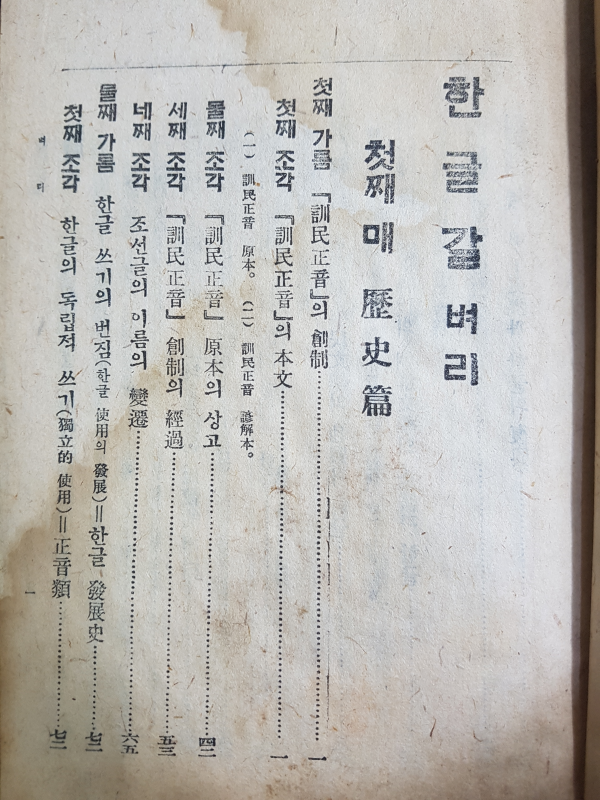 한글갈 벼리
첫째 매 歷史篇
첫째 가름 『訓民正音』의 創制…………一
첫째 조각 『訓民正音』의 本文…………一
(一) 訓民正音 原本。 (二) 訓民正音 諺解本。
둘째 조각 『訓民正音』 原本의 상고…………四二
세째 조각 『訓民正音』 創制의 經過…………五三
네째 조각 조선글의 이름의 變遷…………六五
둘째 가름 한글 쓰기의 번짐(한글 使用의 發展)=한글 發展史…………七二
첫째 조각 한글의 독립적 쓰기(獨立的 使用)=正音類…………七二
벼리
一